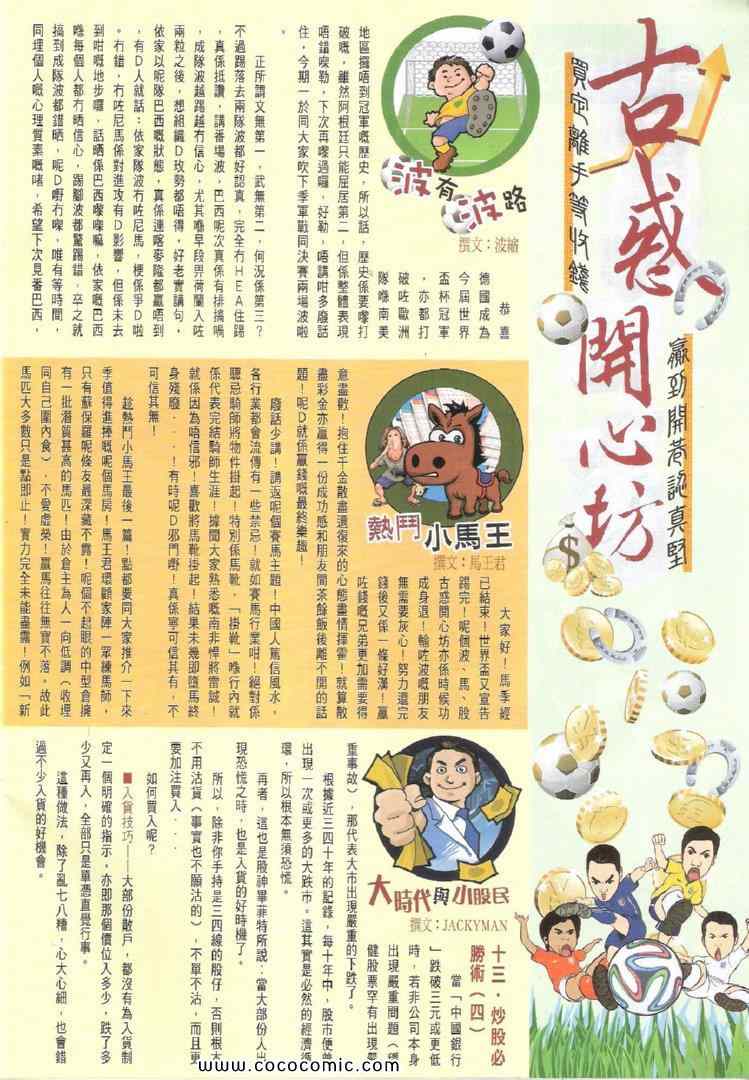 古惑開心坊
買定離手等收錢
贏到開巷認真堅
波有波路
撰文：波繪
恭喜
德國成為
今屆世界
盃杯冠軍
，亦都打
破咗歐洲
隊喺南美
地區攞唔到冠軍嘅歷史，所以話，歷史係要嚟打
破嘅，雖然阿根廷只能屈居第二，但係整體表現
唔錯㗎勒，下次再嚟過囉，好勒，唔講咁多廢話
住，今期一於同大家吹下季軍戰同決賽兩場波啦
。
正所謂文無第一，武無第二，何況係第三？
不過踢落去兩隊波都好認真，完全冇HEA住踢
，真係抵讚，講番場波，巴西呢次真係有排搞喎
，成隊波越踢越冇信心，尤其喺早段畀荷蘭入咗
兩粒之後，想組織D攻勢都唔得，好老實講句，
依家以呢隊巴西嘅狀態，真係連喀麥隆都贏唔到
，有D人就話：依家隊波冇咗尼馬，梗係爭D啦
。冇錯，冇咗尼馬係對進攻有D影響，但係未去
到咁嘅地步囉，話晒係巴西嚟㗎嘛，依家嘅巴西
喺每個人都冇晒信心，踢腳波都驚踢錯，卒之就
搞到成隊波都錯晒，呢D嘢冇㗎，唯有等時間，
同埋個人嘅心理質素嘅啫，希望下次見番巴西，
熱鬥小馬王
撰文：馬王君
大家好！馬季經
已結束！世界盃又宣告
踢完！呢個波、馬、股
古惑開心坊亦係時候功
成身退！輸咗波嘅朋友
無需要灰心！努力還完
錢後又係一條好漢！贏
咗錢嘅兄弟更加需要得
意盡歡！抱住千金散盡還復來的心態盡情揮霍！就算散
盡彩金亦贏得一份成功感和朋友間茶餘飯後離不開的話
題！呢D就係贏錢嘅最終樂趣！
廢話少講！請返呢個賽馬主題！中國人篤信風水，
各行業都會流傳有一些禁忌！就如賽馬行業咁！絕對係
聽忌騎師將物件掛起！特別係馬靴，「掛靴」喺行內就
係代表完結騎師生涯！據聞大家熟悉嘅南非悍將雷誠！
就係因為唔信邪！喜歡將馬靴掛起！結果未幾即墮馬終
身殘廢．．．！有時呢D邪門嘢！真係寧可信其有，不
可信其無！
趁熱鬥小馬王最後一篇！點都要同大家推介一下來
季值得進捧嘅呢個馬房！馬王君環顧家陣一眾練馬師，
只有蘇保羅呢條友最深藏不露！呢個不起眼的中型倉擁
有一批潛質甚高的馬匹！由於倉主為人一向低調（收埋
同自己圍內食），不愛虛榮！贏馬往往無寶不落。故此
馬匹大多數只是點即止！實力完全未能盡露！例如「新
大時代與小股民
撰文：JACKYMAN
十三．炒股必
勝術（四）
當「中國銀行
」跌破三元或更低
時，若非公司本身
出現嚴重問題（穩
健股票罕有出現嚴
重事故），那代表大市出現嚴重的下跌了。
根據近三四十年的記錄，每十年中，股市便曾
出現一次或更多的大跌市。這其實是必然的經濟循
環，所以根本無須恐慌。
再者，這也是股神畢菲特所說：當大部份人出
現恐慌之時，也是入貨的好時機了。
所以，除非你手持是三四線的股仔，否則根本
不用沽貨（事實也不願沽的），不單不沽，而且更
要加注買入．．
如何買入呢？
■入貨技巧——大部份散戶，都沒有為入貨制
定一個明確的指示，亦即那個價位入多少，跌了多
少又再入，全部只是單憑直覺行事。
這種做法，除了亂七八糟，心大心細，也會錯
過不少入貨的好機會。
www.cococomic.com